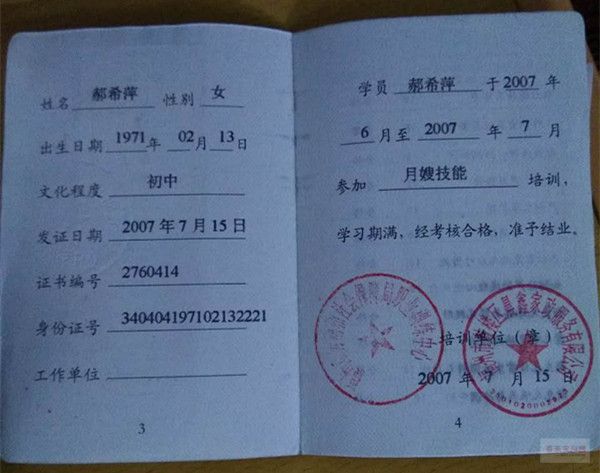 姓名 郝希萍 性别 女
出生日期 1971年 02月 13日
文化程度 初中
发证日期 2007年7月15日
证书编号 2760414
身份证号 340404197102132221
工作单位
3
学员 郝希萍 于2007年
6月至 2007 年 7月
参加 月嫂技能 培训，
学习期满，经考核合格，准予结业。
培训单位（章）
2007 年 7 月 15 日
4